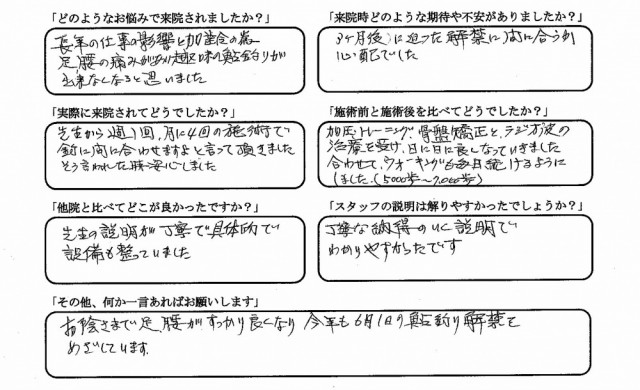 「どのようなお悩みで来院されましたか？」
長年の仕事の影響と加令の為
足、腰の痛みがあり趣味の鮎釣りが
出来なくなると思いました
「来院時どのような期待や不安がありましたか？」
3ヶ月後に迫った解禁に間に合うか
心配でした
「実際に来院されてどうでしたか？」
先生から週1回、月に4回の施術で
釣に間に合わせますよと言って頂きました
そう言われた時安心しました
「施術前と施術後を比べてどうでしたか？」
加圧トレーニング、骨盤矯正と、ラジオ波の
治療を受け、日に日に良くなっていきました
合わせて、ウォーキングを毎日続けるように
しました。(5000歩〜7,000歩)
「他院と比べてどこが良かったですか？」
先生の説明が丁寧で具体的で
設備も整っていました
「スタッフの説明は解りやすかったでしょうか？」
丁寧な納得のいく説明で
わかりやすかったです
「その他、何か一言あればお願いします」
お陰さまで足、腰がすっかり良くなり 今年も6月1日の鮎釣り解禁を
めざしています。